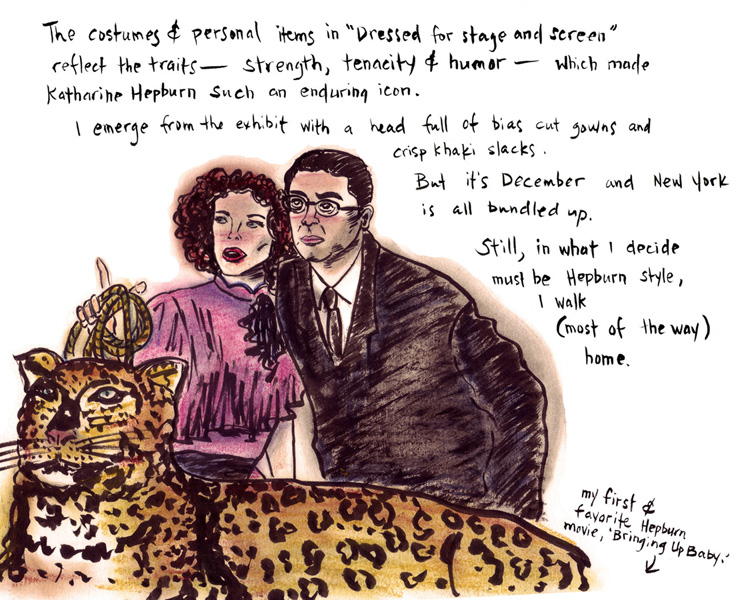 The costumes & personal items in "Dressed for stage and screen"
reflect the traits— strength, tenacity & humor — which made
Katharine Hepburn such an enduring icon.
I emerge from the exhibit with a head full of bias cut gowns and
crisp khaki slacks.
But it's December and New York
is all bundled up.
Still, in what I decide
must be Hepburn style,
I walk
(most of the way)
home.
my first &
favorite Hepburn
movie, 'Bringing Up Baby.'